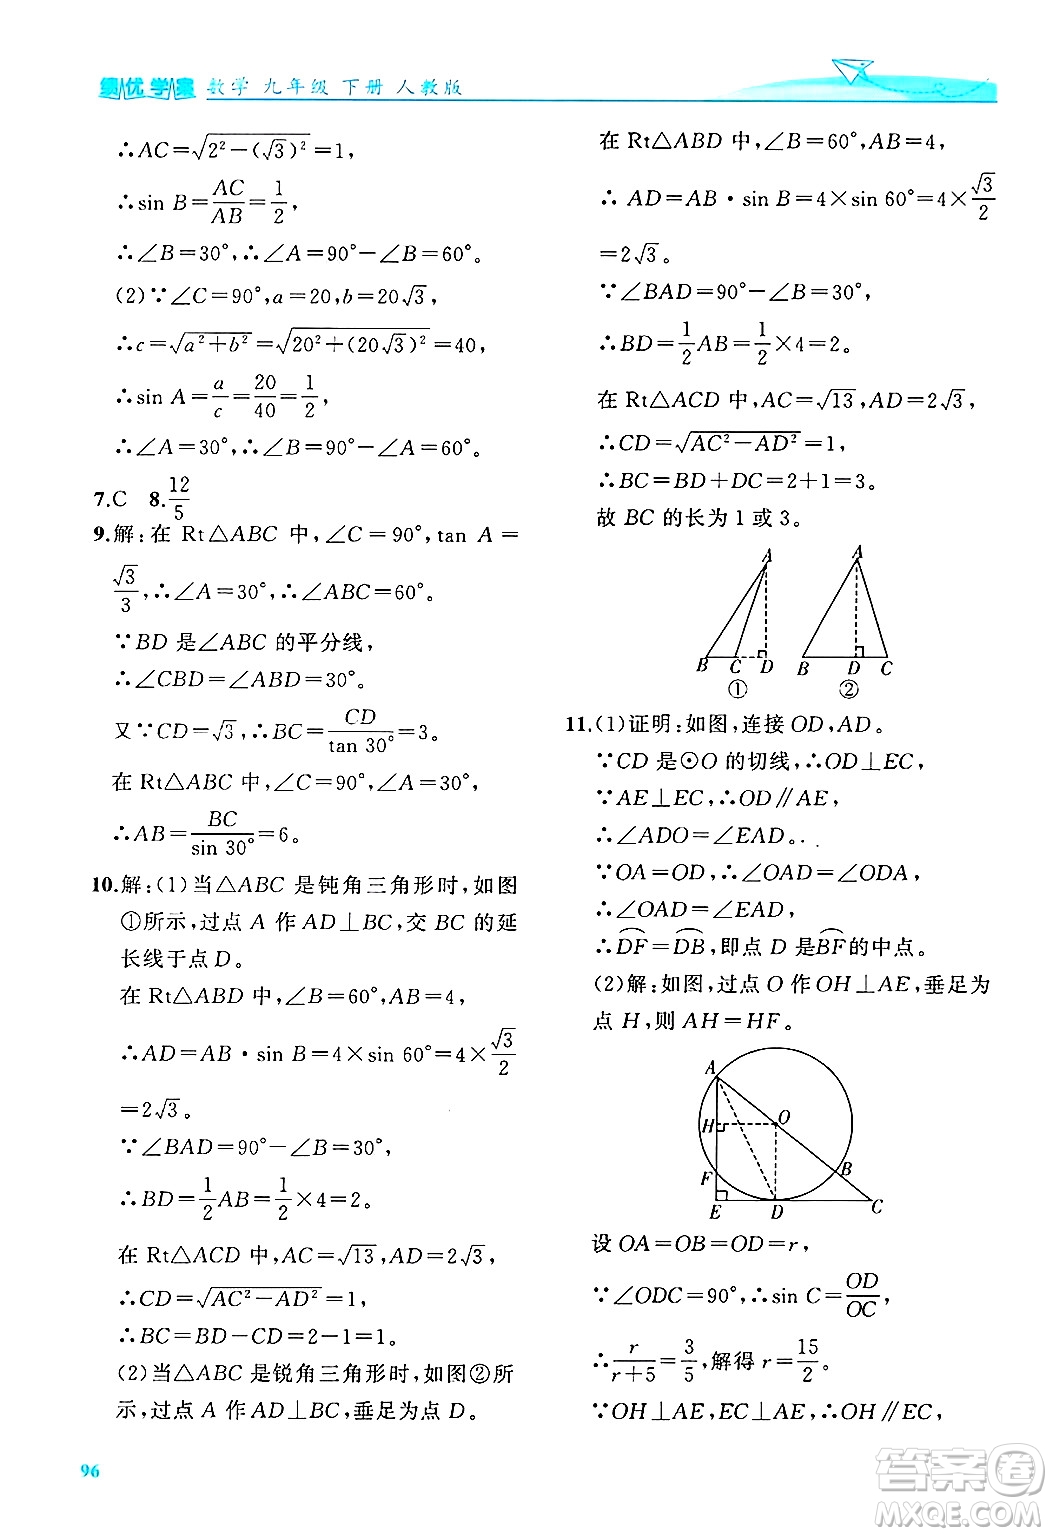 绩优学案 数学 九年级 下册 人教版
∴AC=√(2²-(√3)²)=1,
∴sin B=AC/AB=1/2,
∴∠B=30°,∴∠A=90°-∠B=60°。
(2)∵∠C=90°,a=20,b=20√3,
∴c=√(a²+b²)=√(20²+(20√3)²)=40,
∴sin A=a/c=20/40=1/2,
∴∠A=30°,∴∠B=90°-∠A=60°。
7.C 8.12/5
9.解:在 Rt△ABC 中,∠C=90°,tan A=
√3/3,∴∠A=30°,∴∠ABC=60°。
∵BD 是∠ABC 的平分线,
∴∠CBD=∠ABD=30°。
又∵CD=√3,∴BC=CD/tan 30°=3。
在 Rt△ABC 中,∠C=90°,∠A=30°,
∴AB=BC/sin 30°=6。
10.解:(1)当△ABC 是钝角三角形时,如图
①所示,过点 A 作 AD⊥BC,交 BC 的延
长线于点 D。
在 Rt△ABD 中,∠B=60°,AB=4,
∴AD=AB·sin B=4×sin 60°=4×√3/2
=2√3。
∵∠BAD=90°-∠B=30°,
∴BD=1/2AB=1/2×4=2。
在 Rt△ACD 中,AC=√13,AD=2√3,
∴CD=√(AC²-AD²)=1,
∴BC=BD-CD=2-1=1。
(2)当△ABC 是锐角三角形时,如图②所
示,过点 A 作 AD⊥BC,垂足为点 D。
96
在 Rt△ABD 中,∠B=60°,AB=4,
∴AD=AB·sin B=4×sin 60°=4×√3/2
=2√3。
∵∠BAD=90°-∠B=30°,
∴BD=1/2AB=1/2×4=2。
在 Rt△ACD 中,AC=√13,AD=2√3,
∴CD=√(AC²-AD²)=1,
∴BC=BD+DC=2+1=3。
故 BC 的长为 1 或 3。
A A
B C D B D C
① ②
11.(1)证明:如图,连接 OD,AD。
∵CD 是⊙O 的切线,∴OD⊥EC,
∵AE⊥EC,∴OD∥AE,
∴∠ADO=∠EAD。
∵OA=OD,∴∠OAD=∠ODA,
∴∠OAD=∠EAD,
∴DF=DB,即点 D 是BF的中点。
(2)解:如图,过点 O 作 OH⊥AE,垂足为
点 H,则 AH=HF。
A
H O
F B
E D C
设 OA=OB=OD=r,
∵∠ODC=90°,∴sin C=OD/OC,
∴r/(r+5)=3/5,解得 r=15/2。
∵OH⊥AE,EC⊥AE,∴OH∥EC,
答案圈
MXQE.COM